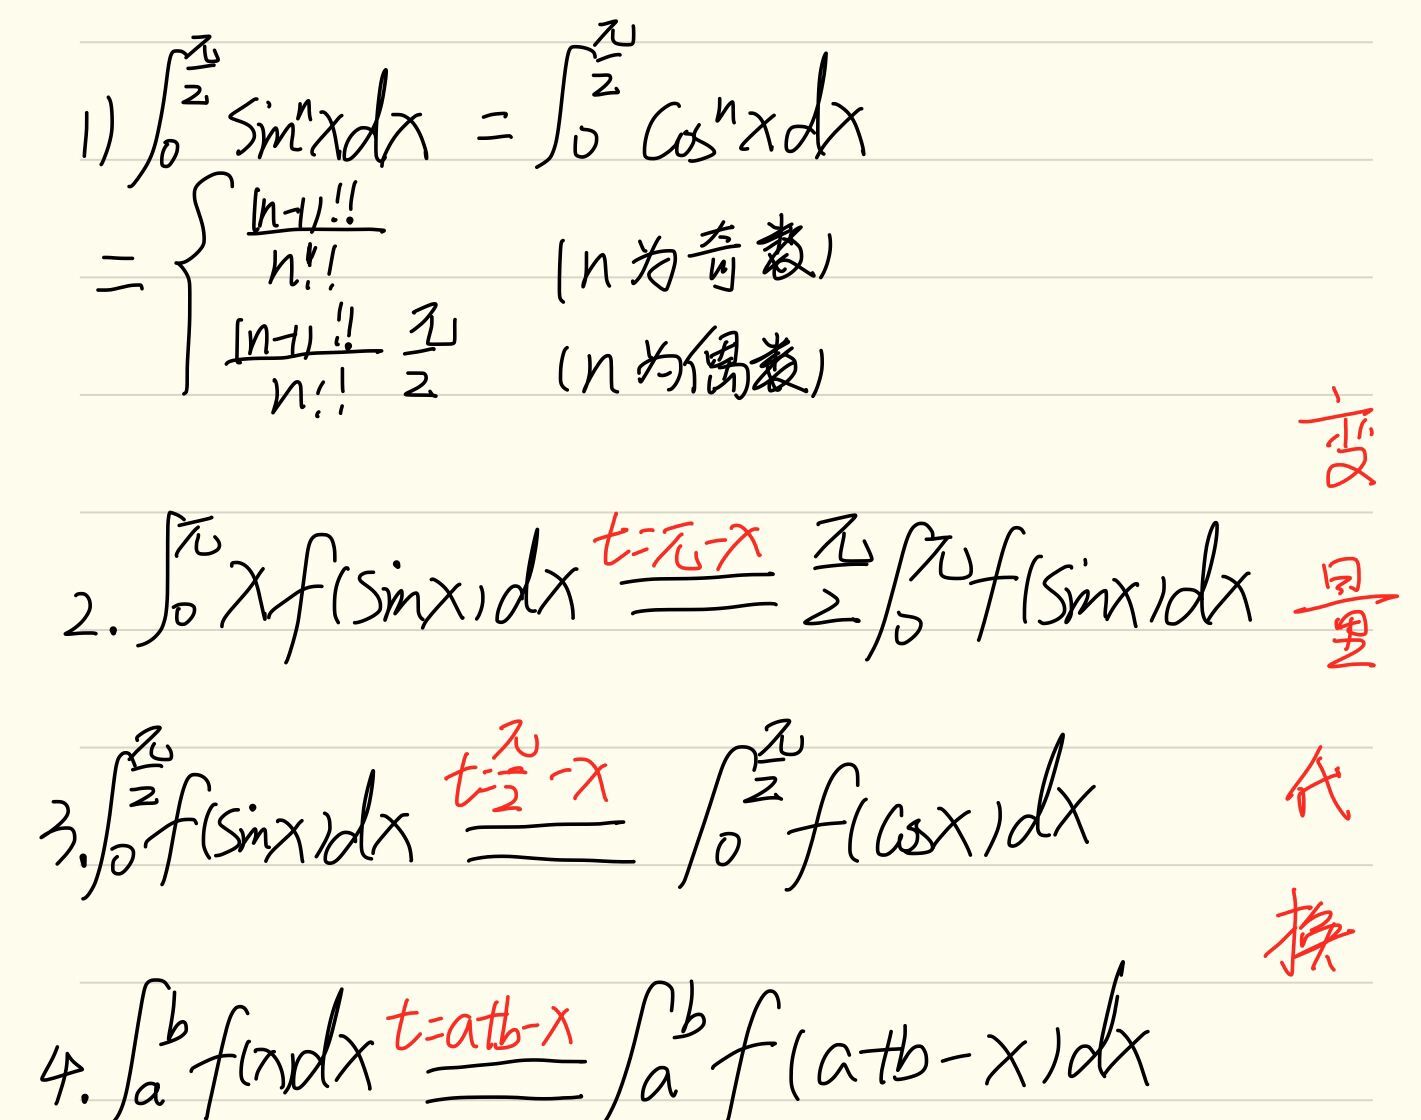 1) ∫₀^(π/2) sinⁿx dx = ∫₀^(π/2) cosⁿx dx
= { (n-1)!!/n!! (n为奇数)
(n-1)!!/n!! π/2 (n为偶数)
2. ∫₀^π x f(sinx) dx =(t=π-x)= π/2 ∫₀^π f(sinx) dx
3. ∫₀^(π/2) f(sinx) dx =(t=π/2-x)= ∫₀^(π/2) f(cosx) dx
4. ∫ₐ^b f(x) dx =(t=a+b-x)= ∫ₐ^b f(a+b-x) dx
变
量
代
换